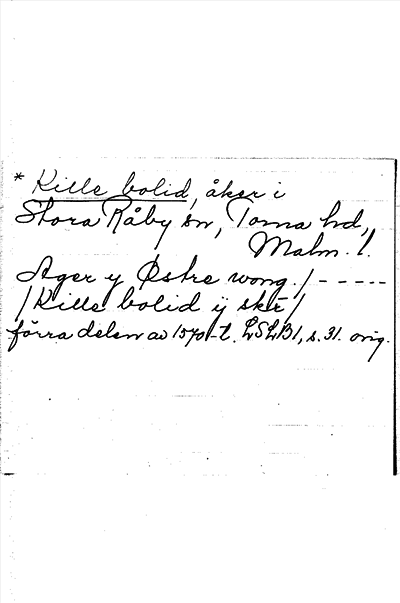 * Kille bolid, åker i
Stora Råby sn, Torna hd,
Malm. l.
Ager y Østre wong. / - - - - -
/ Kille bolid ÿ sker /
förra delen av 1570-t. LSLB1, s. 31. orig.